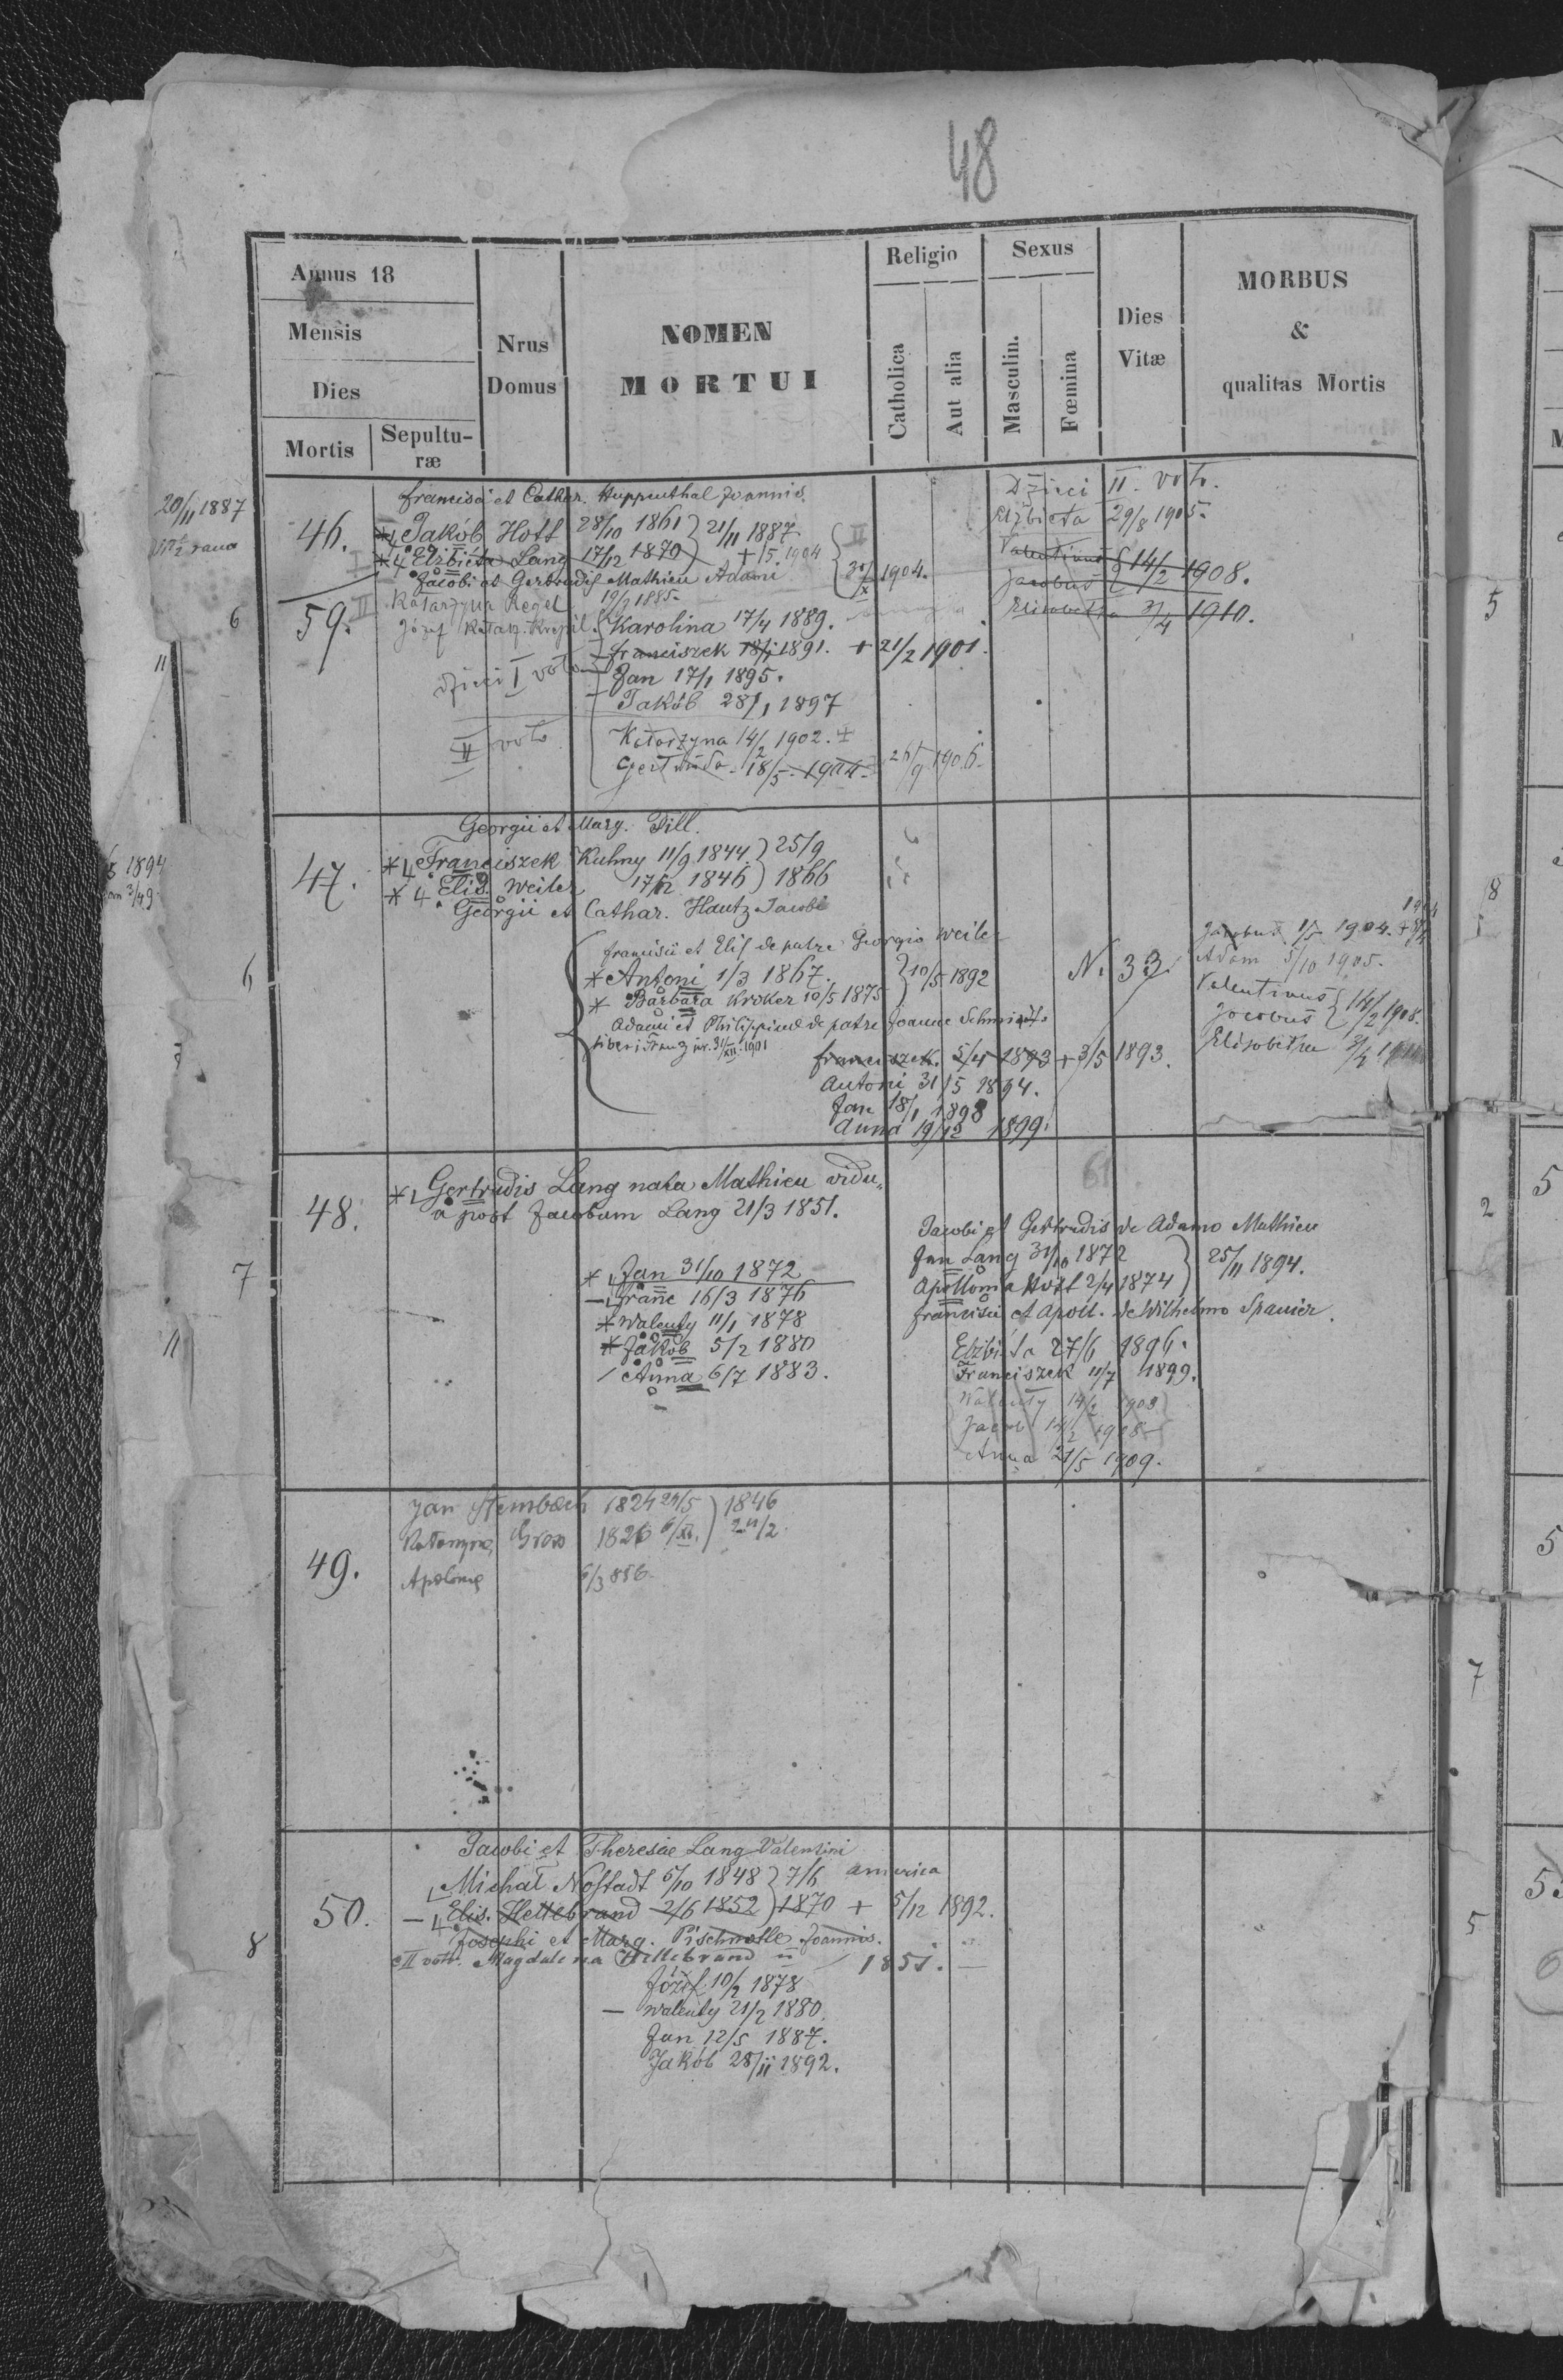 48
Annus 18
Mensis
Dies
Mortis
Sepulturæ
Nrus Domus
NOMEN MORTUI
Religio
Catholica
Aut alia
Sexus
Masculin.
Fœmina
Dies Vitæ
MORBUS & qualitas Mortis
20/11 1887
46.
Francisci et Cathar. Huppenthal Joannis.
Jakób Hott 28/10 1861 } 21/11 1887
Elżbieta Lang 17/12 1870 + 15 1904
Jacobi et Gertrudis Mathieu Adami
II
1904.
59. II
Katarzyna Regel 19/3 1885
Józef Katarz.
Karolina 17/4 1889.
Franciszek 18/1 1891. + 21/2 1901.
Jan 17/1 1895.
Jakób 28/1 1897
dzieci I voto
II voto
Katarzyna 14/2 1902. +
Gertruda 18/5 1904 26/9 1906.
Dzieci II voto.
Elżbieta 29/8 1905.
Valentinus } 14/2 1908.
Jacobus
Elisabetha 3/4 1910.
1894
6
47.
Georgii et Marg. Dill.
Franciszek Kuhny 11/9 1844 } 25/9
Elis. Weiler 17/12 1846 } 1866
Georgii et Cathar. Hautz Jacobi
Francisci et Elis de patre Georgio Weiler
Antoni 1/3 1867. } 10/5 1892
Barbara Kroker 10/5 1875
Adami et Philippinæ de patre Joanne Schmidt.
31/XII 1901
Franciszek. 5/4 1893 + 3/5 1893.
Antoni 31/5 1894.
Jan 18/1 1898
Anna 19/12 1899.
N. 33.
Jacobus 1/5 1904. +
Adam 5/10 1905.
Valentinus } 14/2 1908.
Jacobus
Elisabetha 3/4
7
48.
Gertrudis Lang nata Mathieu vidu„
a post Jacobum Lang 21/3 1851.
Jan 31/10 1872
Franc 16/3 1876
Walenty 11/1 1878
Jakób 5/2 1880
Anna 6/7 1883.
61
Jacobi et Gertrudis de Adamo Mathieu
Jan Lang 31/10 1872 } 25/11 1894.
Apollonia Hott 2/4 1874
Francisci et Apoll. de Wilhelmo Spanier.
Elżbieta 27/6 1896.
Franciszek 11/7 1899.
Walenty 14/2 1908
Jacob 14/2 1908
Anna 21/5 1909.
49.
Jan Stembach 1824 29/5 } 1846
Katarzyna Gross 1826 6/XI. 24/2.
Apolonia 6/3 856.
8
50.
Jacobi et Theresiæ Lang Valentini
Michał Nostadt 5/10 1848 } 7/6 America
Elis. Hellebrand 2/6 1852 } 1870 + 5/12 1892.
Josephi et Marg. Pischnotte Joannis.
c II voto. Magdalena Hellebrand 1851. —
Józef 10/2 1878
— Walenty 21/2 1880.
Jan 12/5 1887.
Jakób 28/11 1892.